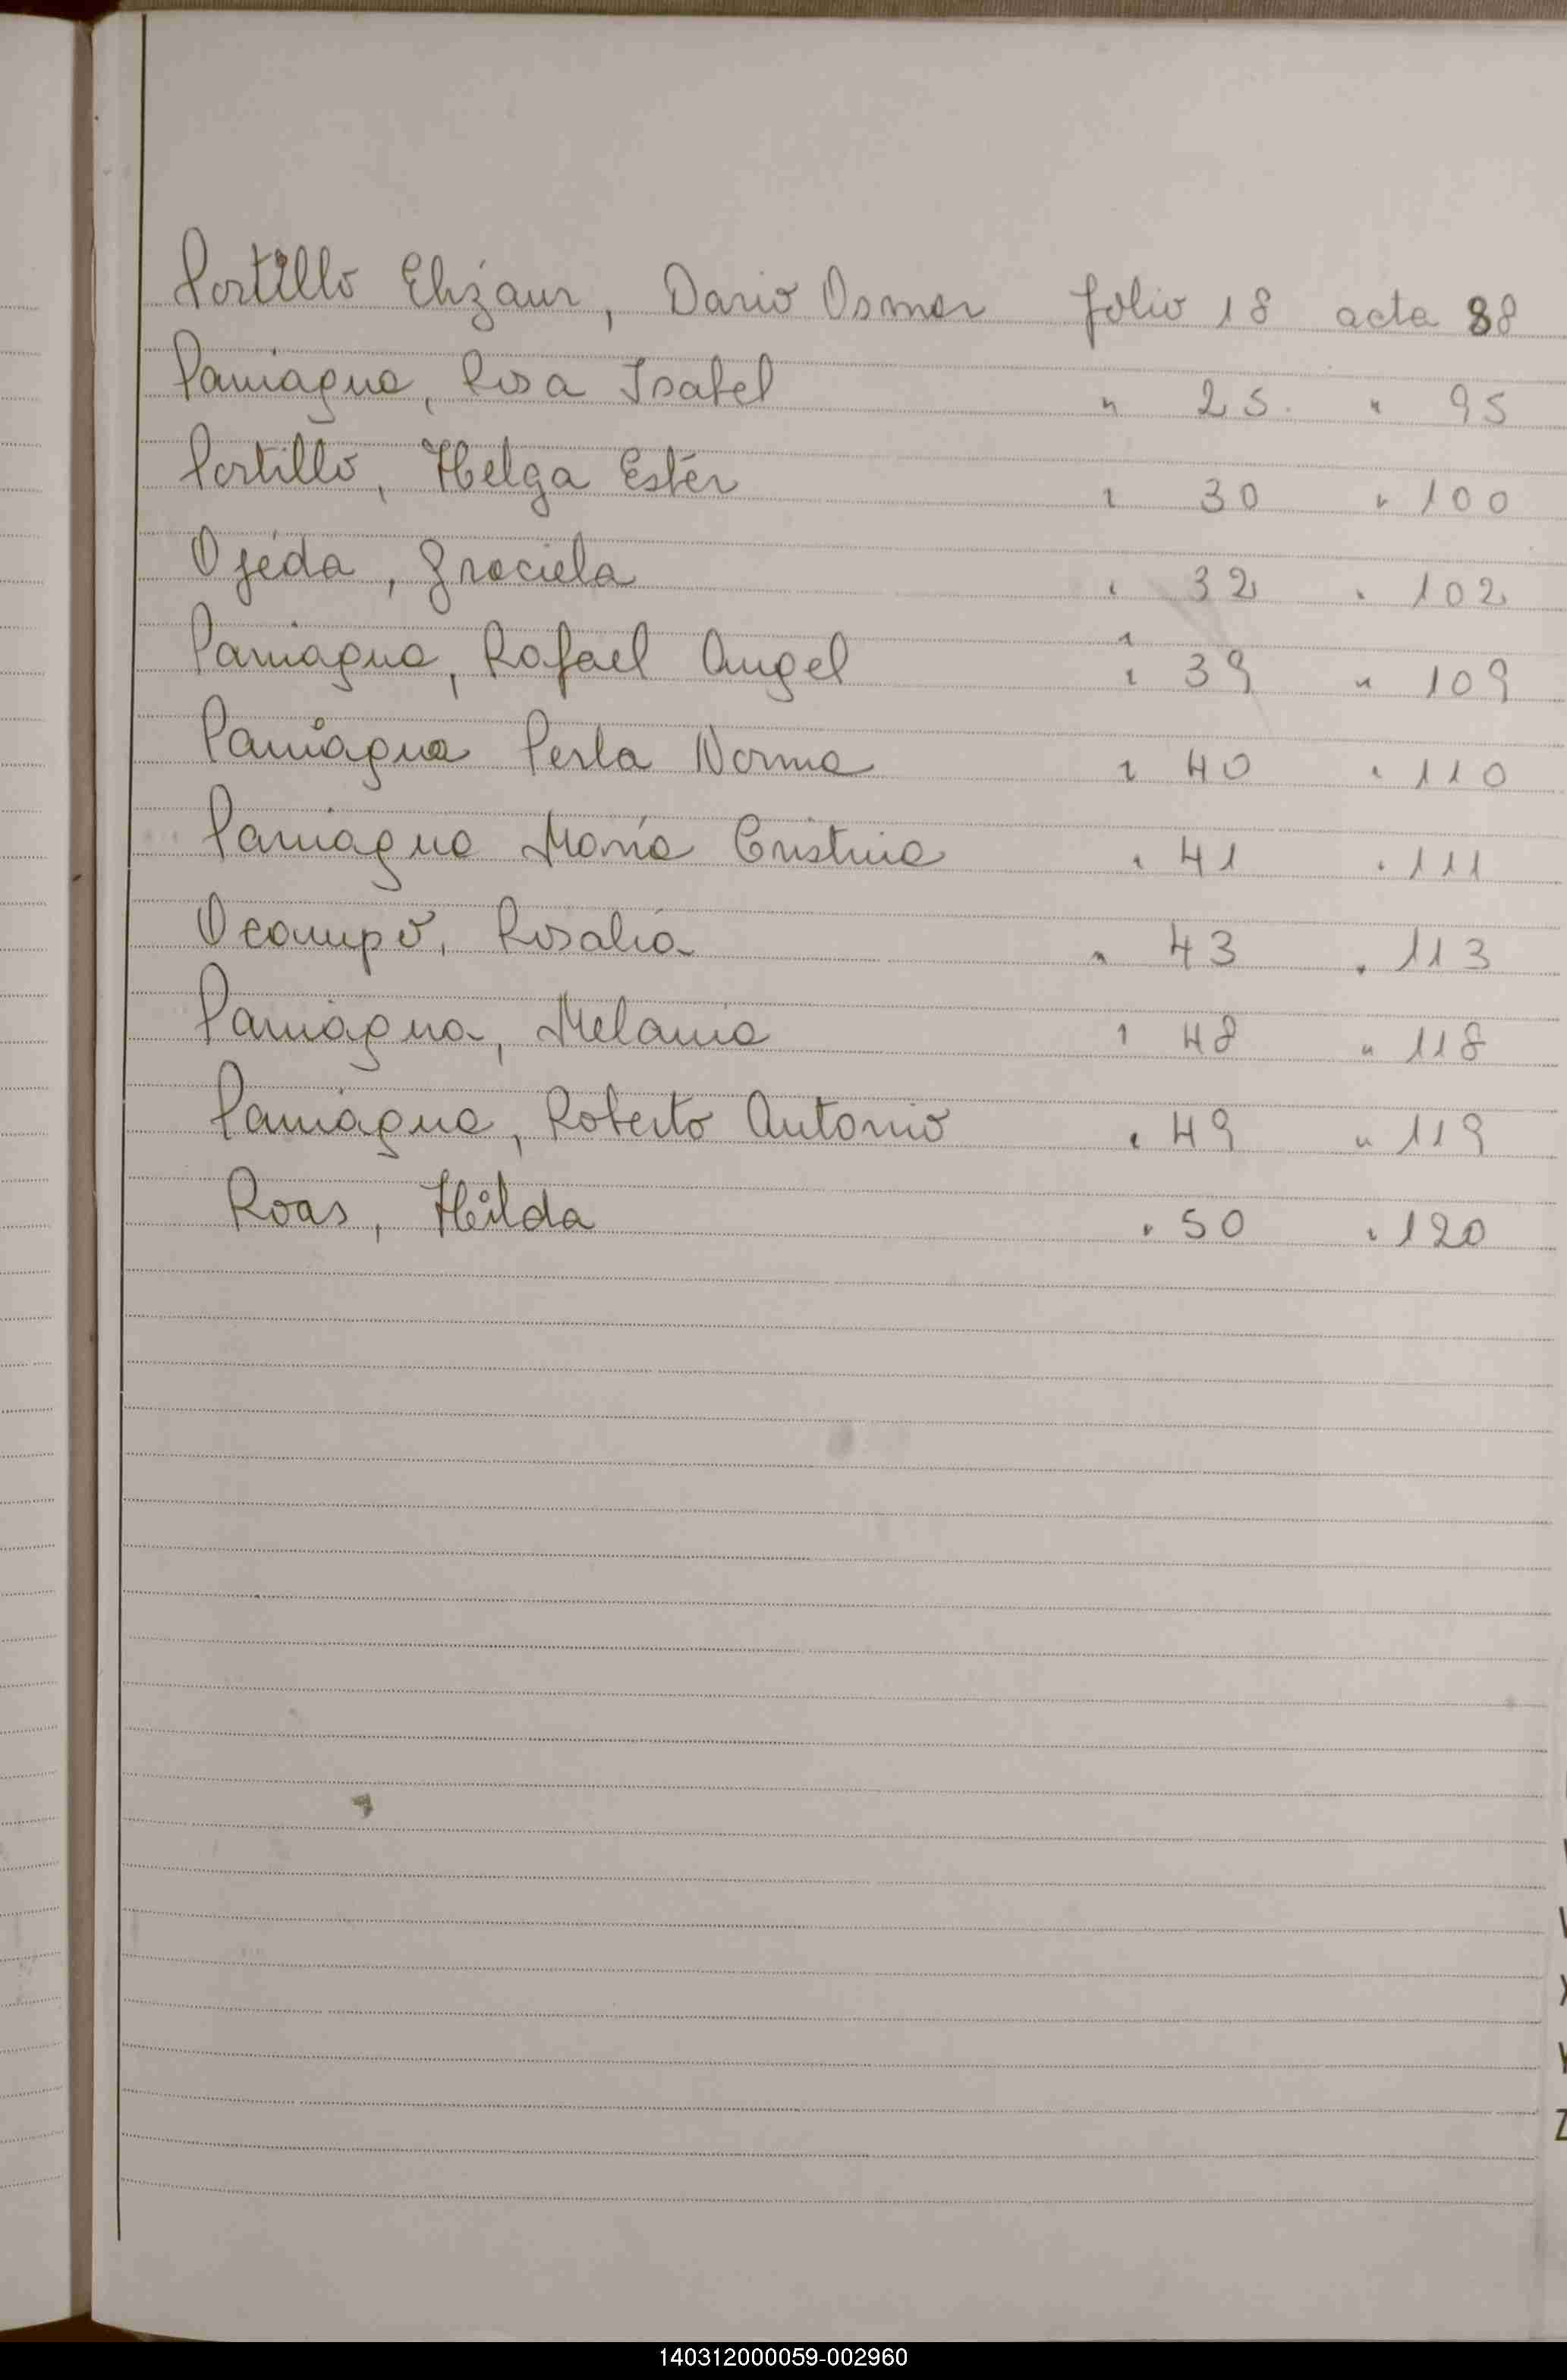 Portillo Elizaur, Dario Osmar folio 18 acta 88
Paniagua, Rosa Isabel " 25. " 95
Portillo, Helga Ester " 30 " 100
Ojeda, Graciela " 32 " 102
Paniagua, Rafael Angel " 39 " 109
Paniagua Perla Norma " 40 " 110
Paniagua María Cristina " 41 " 111
Ocampo, Rosalia " 43 " 113
Paniagua, Melania " 48 " 118
Paniagua, Roberto Antonio " 49 " 119
Roas, Hilda " 50 " 120
Z
140312000059-002960